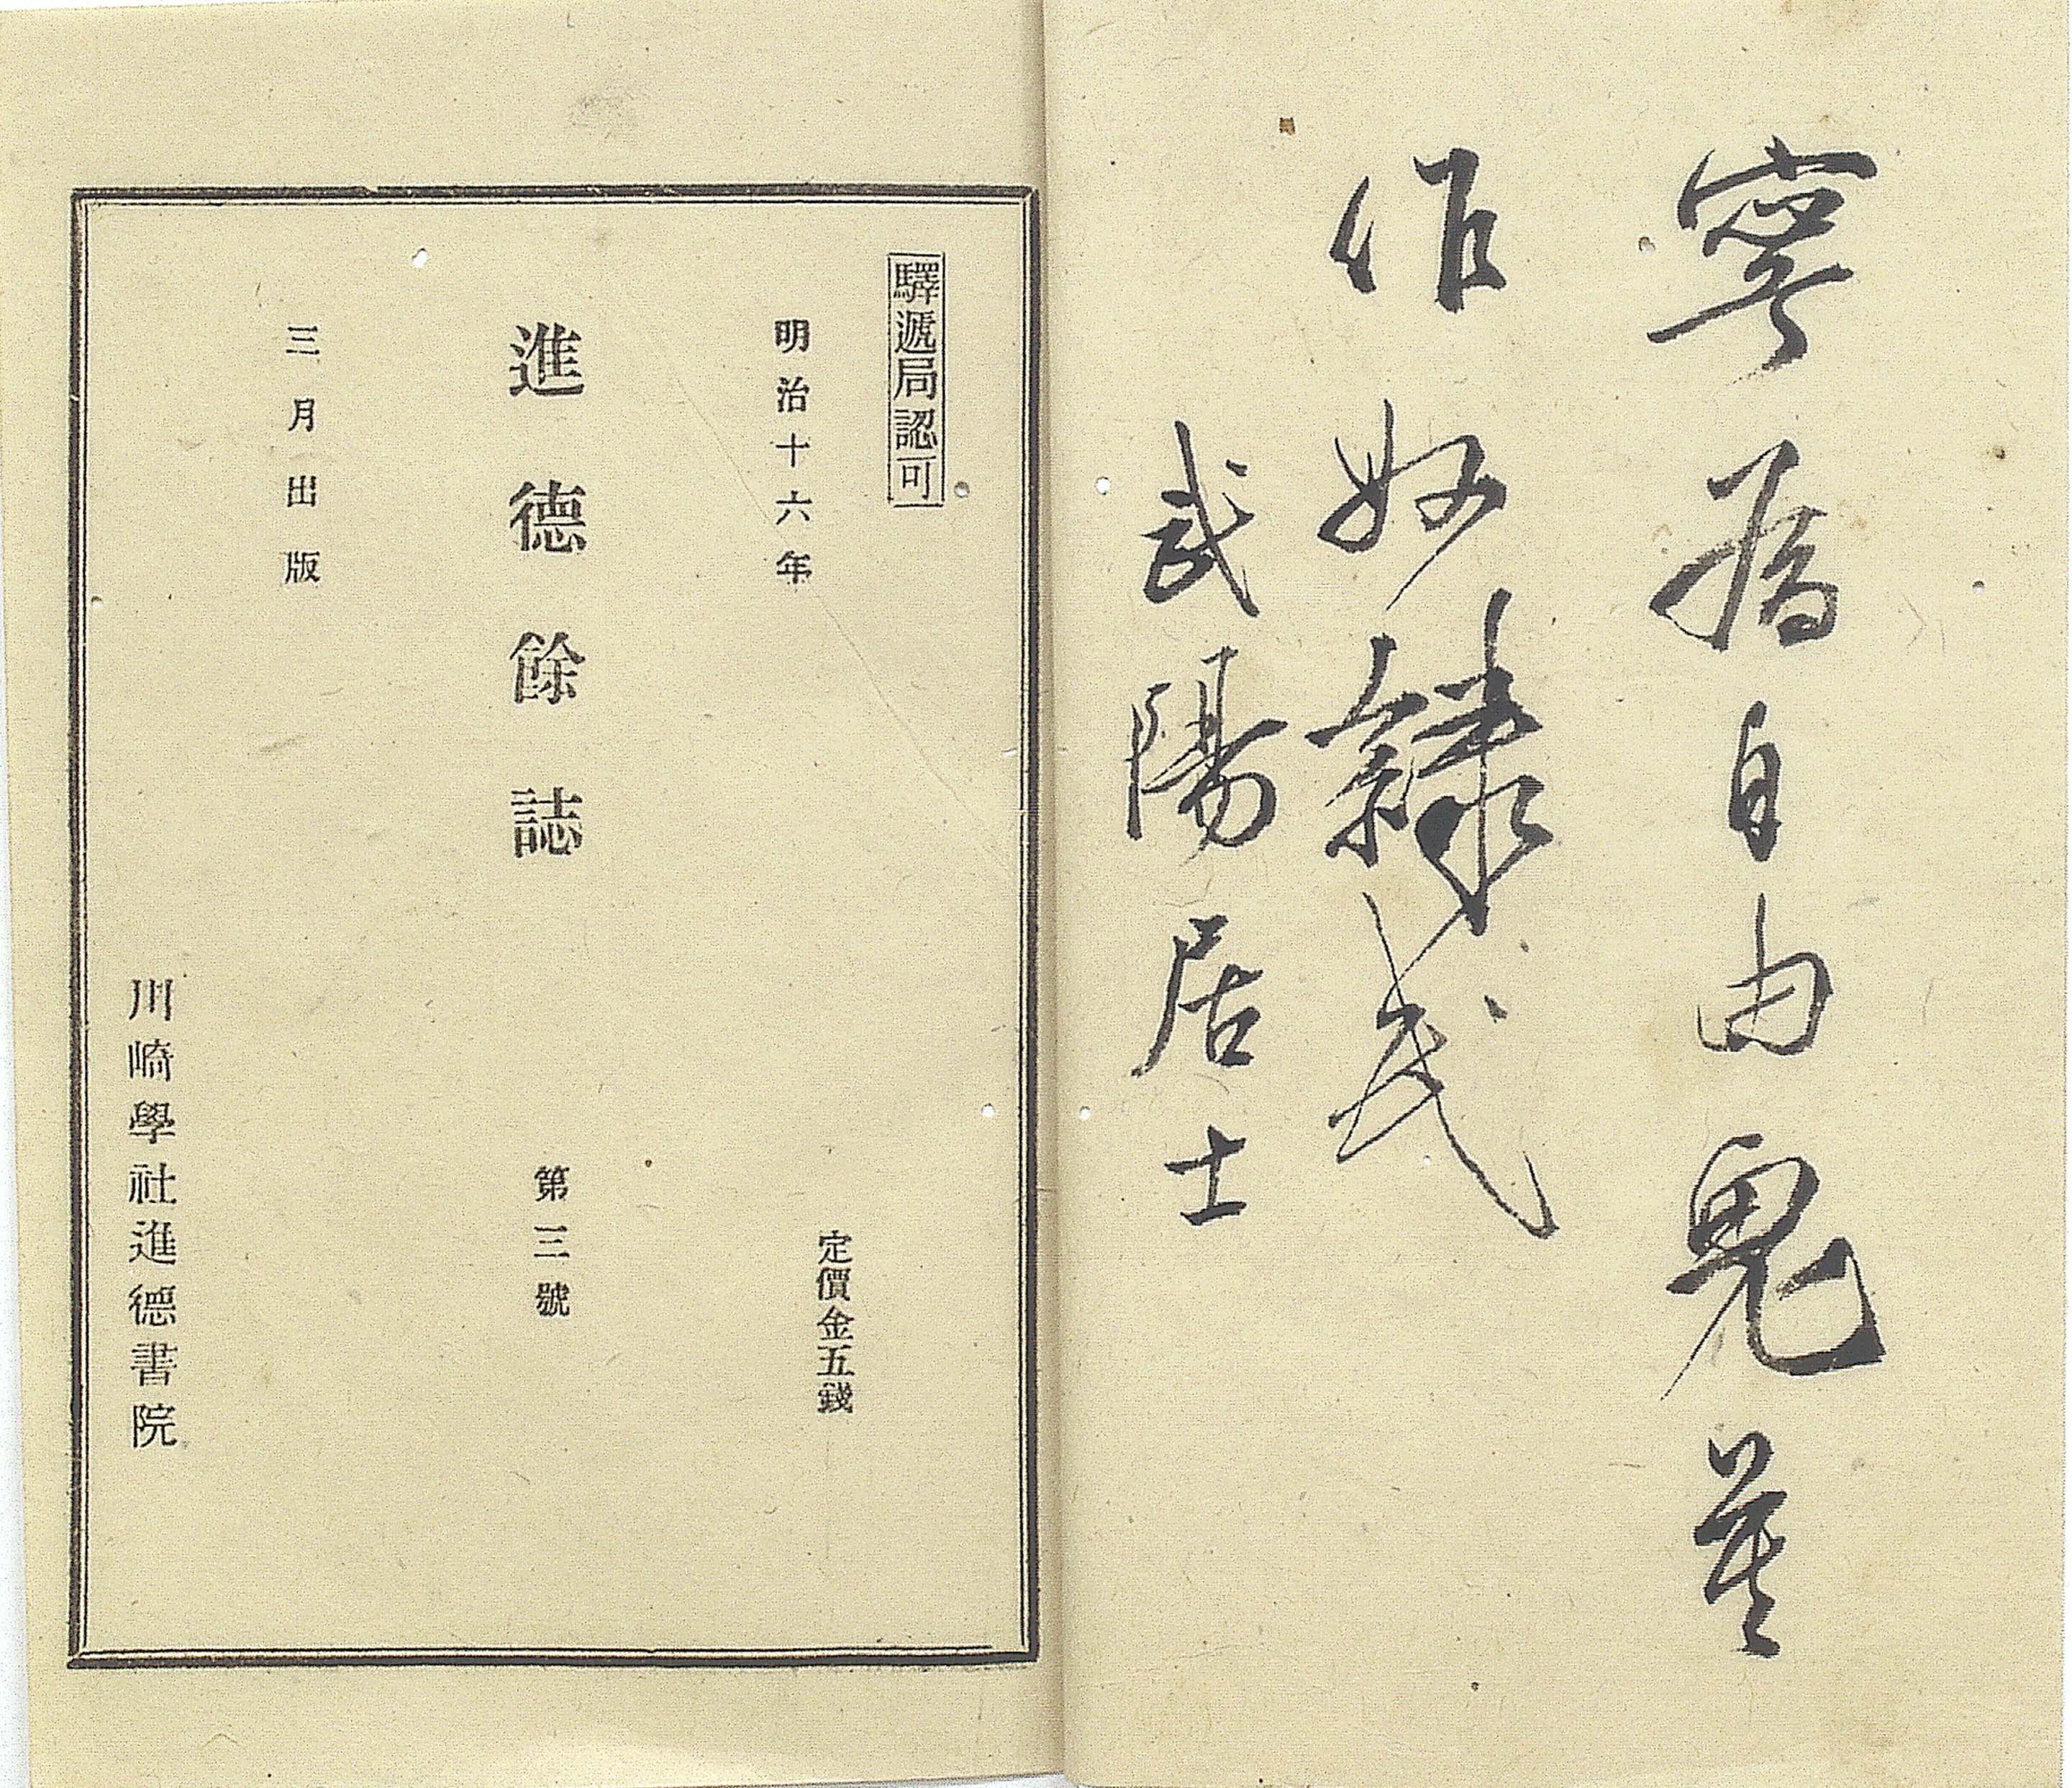 寧為自由鬼莫
作奴隷民
武陽居士
驛遞局認可
明治十六年
定價金五錢
進德餘誌
第三號
三月出版
川崎學社進德書院